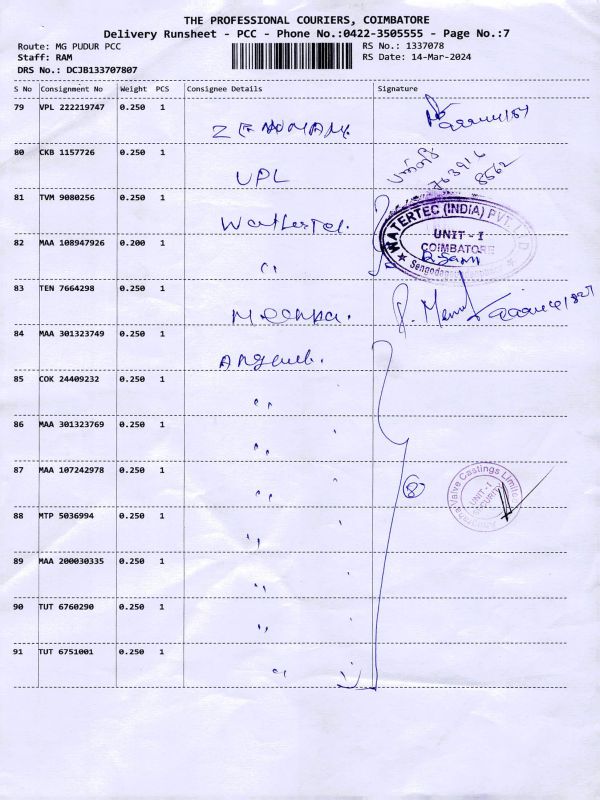 THE PROFESSIONAL COURIERS, COIMBATORE
Delivery Runsheet - PCC - Phone No.:0422-3505555 - Page No.:7
Route: MG PUDUR PCC
RS No.: 1337078
Staff: RAM
RS Date: 14-Mar-2024
DRS No.: DCJB133707807
S No Consignment No Weight PCS Consignee Details Signature
79 VPL 222219747 0.250 1
80 CKB 1157726 0.250 1 UPL
81 TVM 9080256 0.250 1
WATERTEC (INDIA) PVT. LTD
UNIT - I
COIMBATORE
82 MAA 108947926 0.200 1 "
83 TEN 7664298 0.250 1
84 MAA 301323749 0.250 1
85 COK 24409232 0.250 1 "
86 MAA 301323769 0.250 1 "
87 MAA 107242978 0.250 1 "
8
Valve Castings Limited
UNIT-I
SECURITY
88 MTP 5036994 0.250 1 "
89 MAA 200030335 0.250 1 "
90 TUT 6760290 0.250 1 "
91 TUT 6751001 0.250 1 "